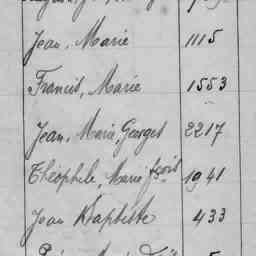 Jean, Marie 1115
Francis, Marie 1553
Jean, Marie, Georges 2217
Théophile, Marie fçois 1941
Jean Baptiste 433